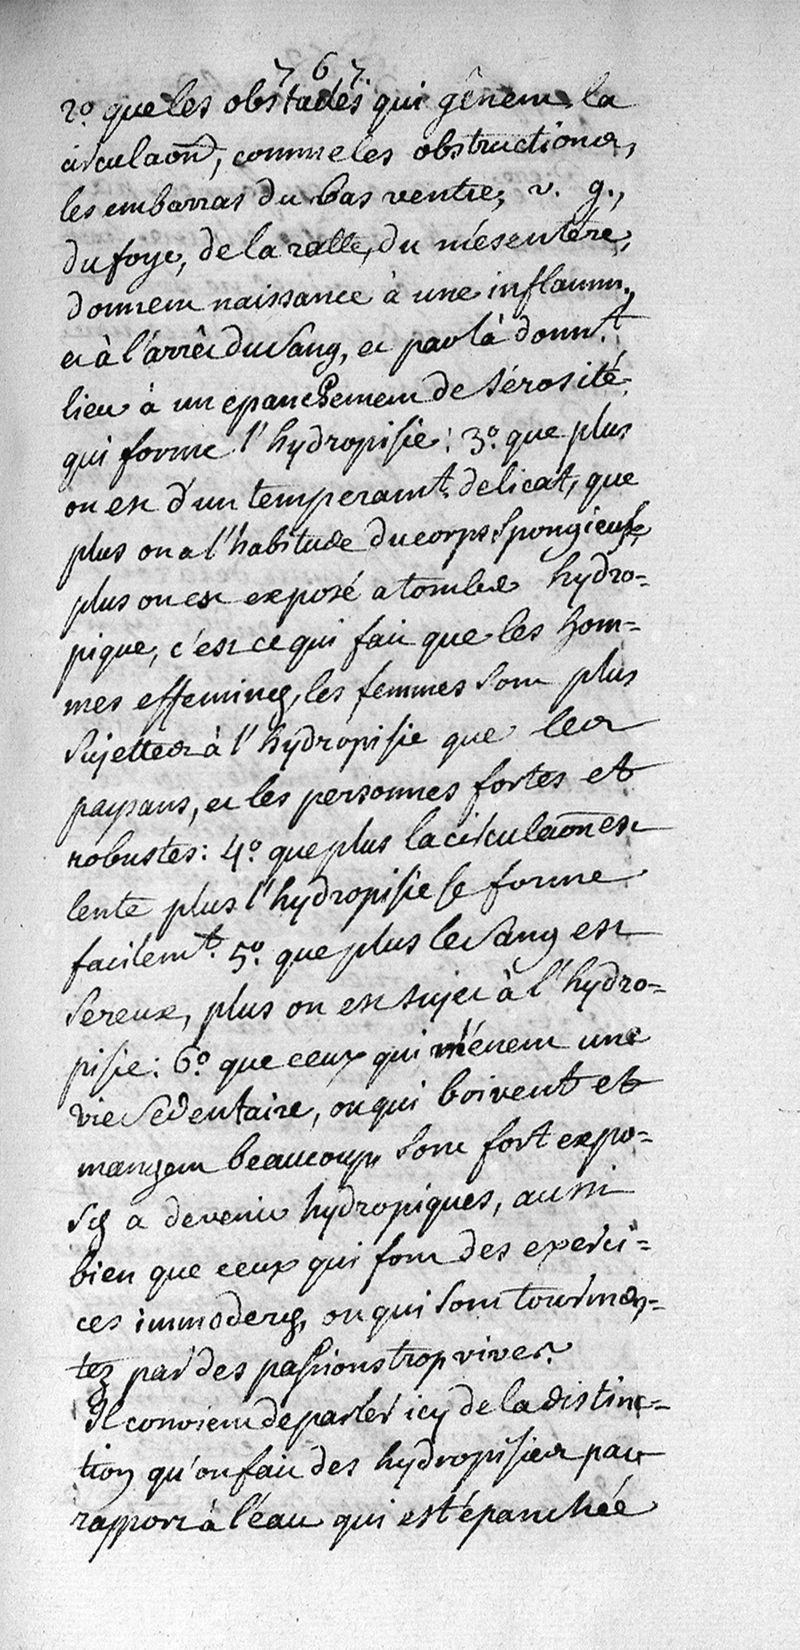 767
2.° que les obstacles qui gênent la
circulaōn, comme les obstructions,
les embarras du bas ventre, v. g.,
du foye, de la ratte, du mésentére,
donnent naissance à une inflamm.
et à l'arrêt du sang, et par là donnt.
lieu à un epanchement de sérosité
qui forme l'hydropisie: 3.° que plus
on est d'un temperamt. delicat, que
plus on a l'habitude du corps spongieuse,
plus on est exposé a tomber hydro=
pique, c'est ce qui fait que les hom=
mes effeminez, les femmes sont plus
sujettes à l'hydropisie que les
paysans, et les personnes fortes et
robustes: 4.° que plus la circulaōn est
lente plus l'hydropisie se forme
facilemt. 5.° que plus le sang est
sereux, plus on est sujet à l'hydro=
pisie: 6.° que ceux qui ménent une
vie sedentaire, ou qui boivent et
mangent beaucoup sont fort expo=
sez a devenir hydropiques, aussi
bien que ceux qui font des exerci=
ces immoderez, ou qui sont tourmen=
tez par des passions trop vives.
Il convient de parler icy de la distinc=
tion qu'on fait des hydropisies par
rapport à l'eau qui est épanchée